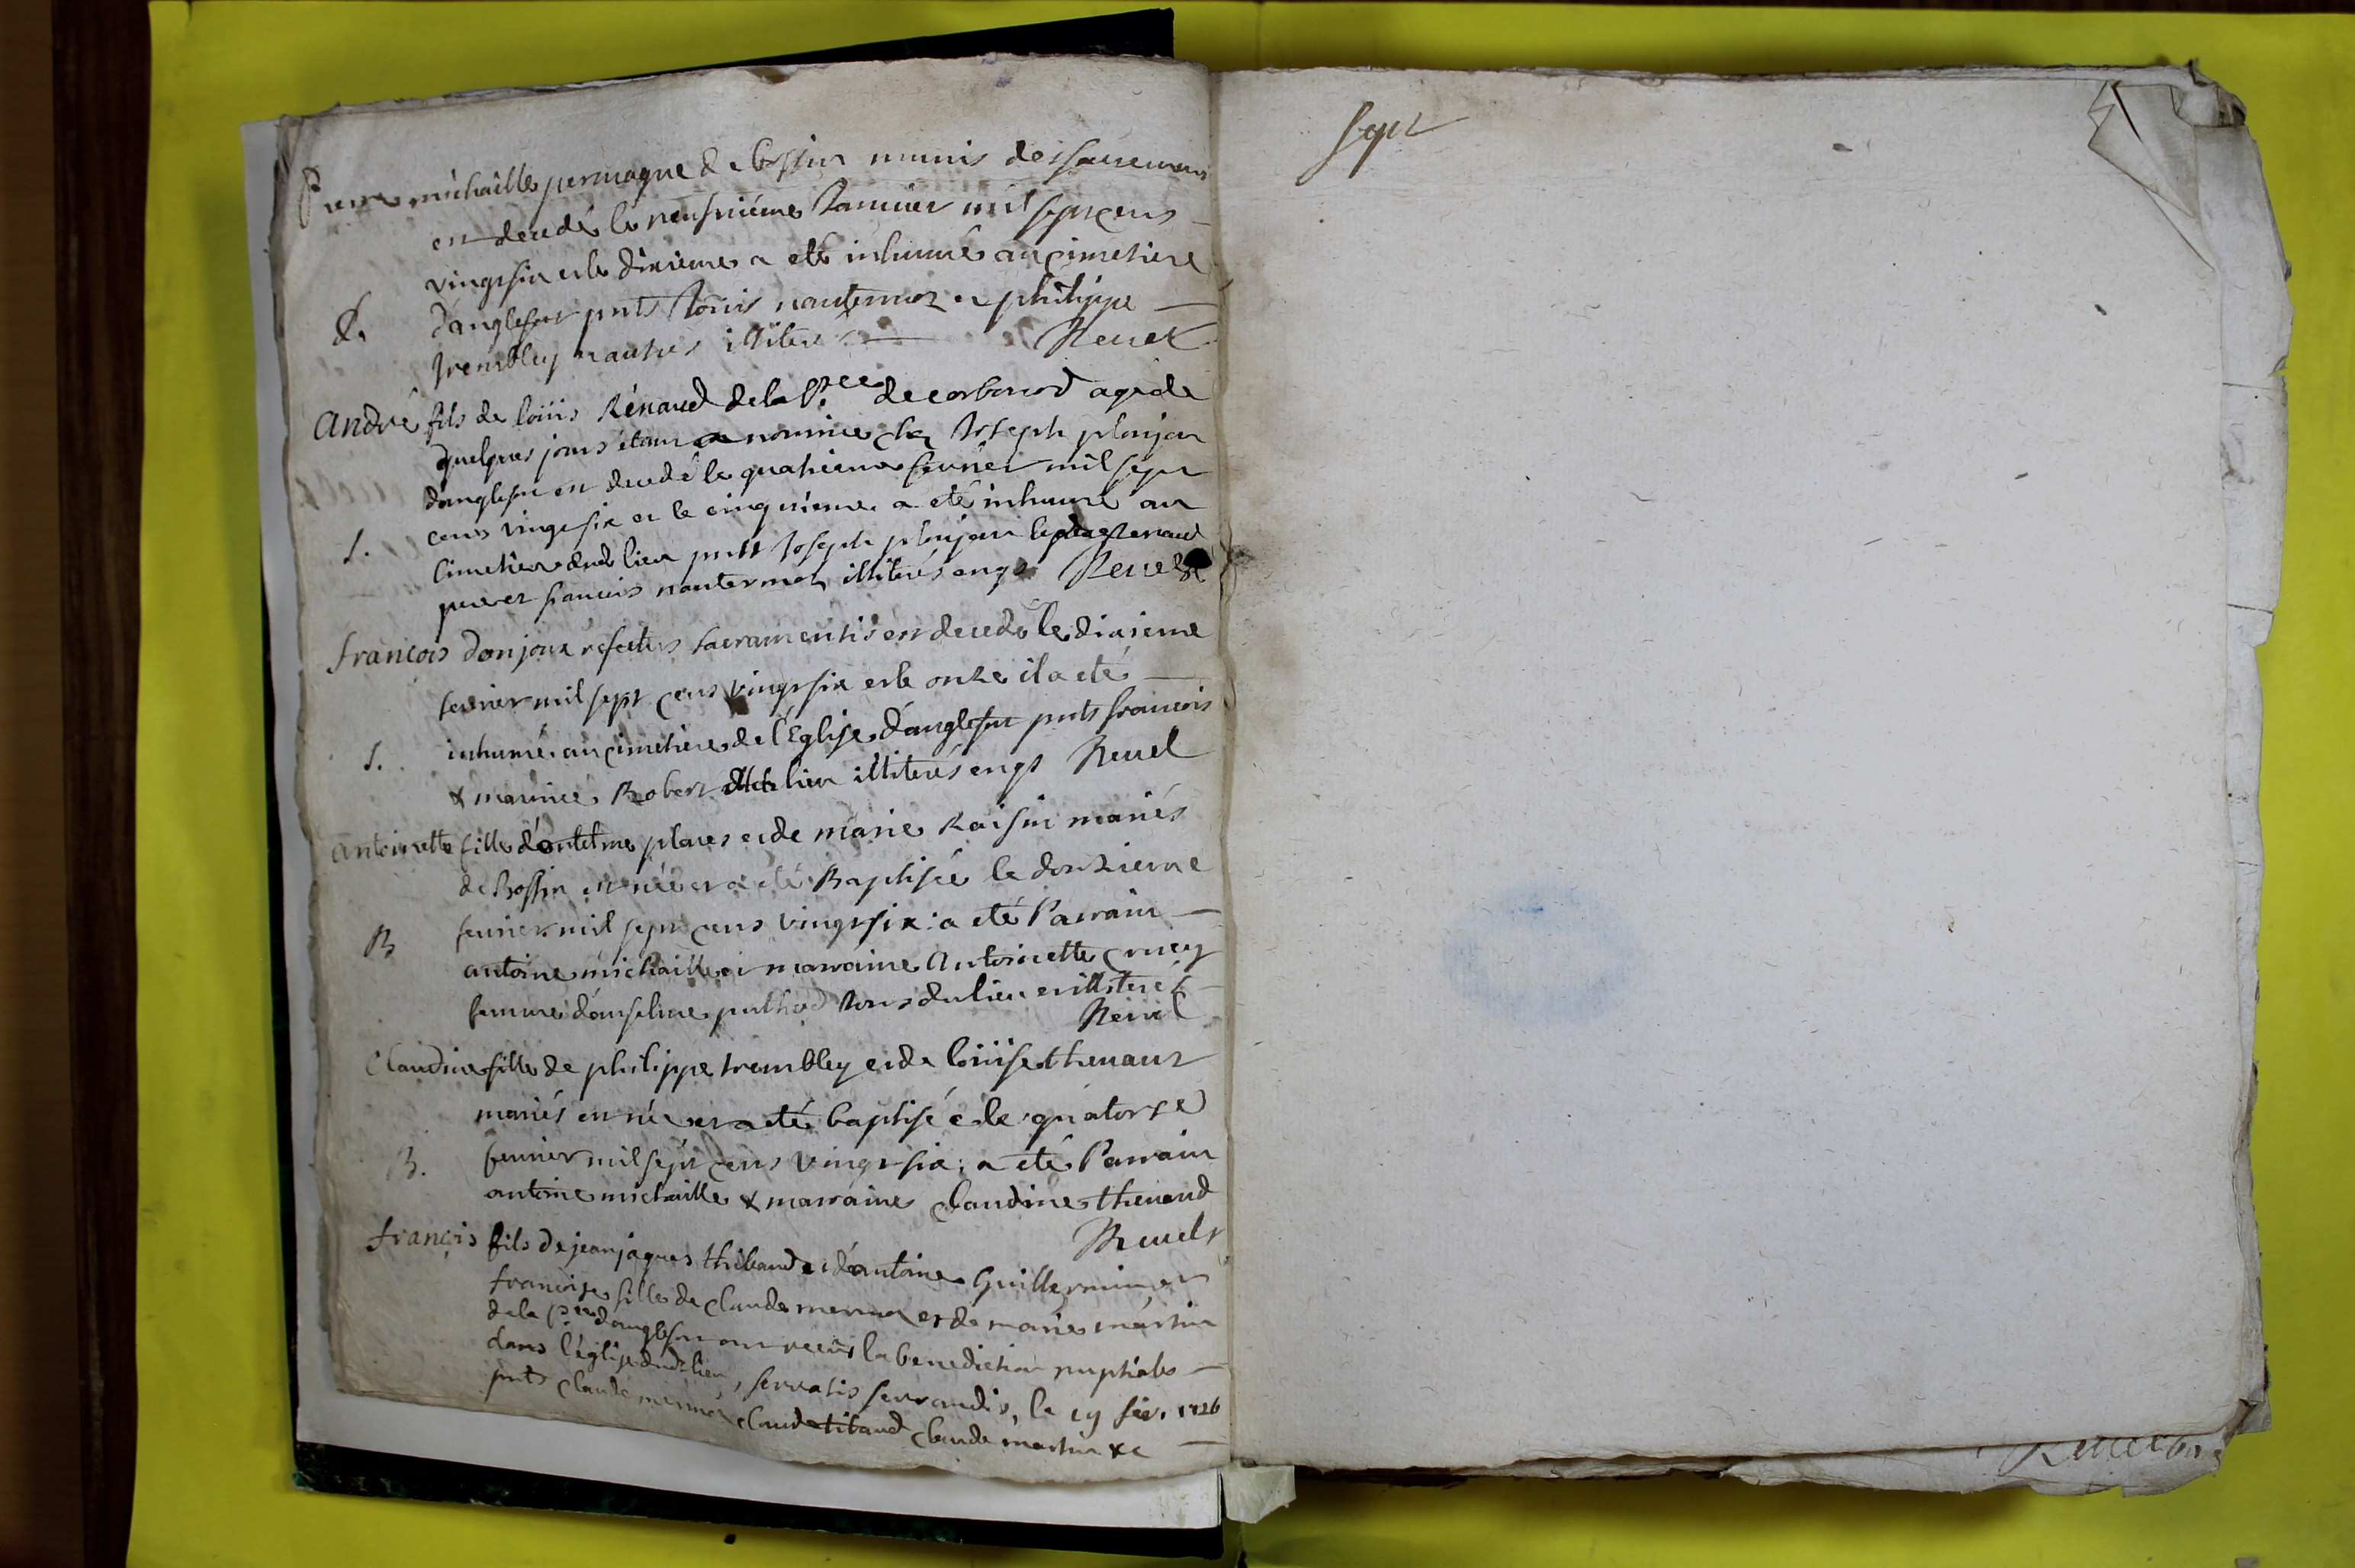 Pierre michaille permagne de bossin munis des sacremens
est decedé le neufviéme Janvier mil sept cens
vingt six et le dixieme a eté inhumé au cimetiere
d'anglefort pnts louis nantermoz et philippe
S.
trembley n autres illiterés Revel
André fils de loüis Rénaud de la P.ce de corbonod agé de
quelques jours étant en nourrice chez Joseph plonjon
d'anglefort est decedé le quatrieme fevrier mil sept
cens vingt six et le cinquieme a eté inhumé au
S.
cimetiere dudt lieu pnts Joseph plonjon Renaud
pere et francois nantermoz illiterés enqs Revel
francois donjoux refectus sacramentis est decedé le dixieme
fevrier mil sept cens vingt six et le onze il a eté
inhumé au cimetiere de l'Eglise d'anglefort pnts francois
S.
& maurice Robert dudt lieu illiterés enqs Revel
Antoinette fille d'antelme places et de marie Raisin mariés
de Bossin est née et a eté Baptisée le douzieme
fevrier mil sept cens vingt six : a eté Parrain
B
antoine michaille et marraine Antoinette crucy
femme d'anselme puthod tous du lieu et illiterés
Revel
Claudine fille de philippe trembley et de loüise thenaut
mariés est née et a eté baptisée le quatorze
B.
fevrier mil sept cens vingt six ; a eté Parrain
antoine michaille & marraine Claudine thenaud
Revel
francois fils de jean jaques thibaud et d'antoine Guillermin et
francoise fille de Claude mermoz et de marie martin
de la P.ce d'anglefort ont reçus la benediction nuptiale
dans l'église dudt lieu, servatis servandis, le 19 fév. 1726
pnts Claude mermoz Claude tibaud Claude martin &c
sept